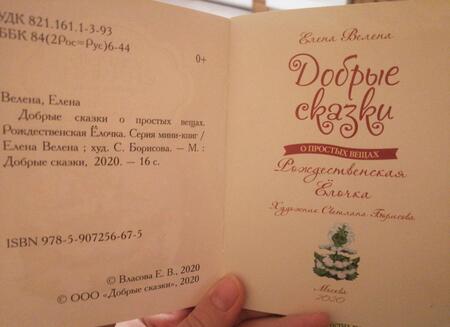 УДК 821.161.1-3-93
ББК 84(2Рос=Рус)6-44
0+
Велена, Елена
Добрые сказки о простых вещах.
Рождественская Ёлочка. Серия мини-книг /
Елена Велена ; худ. С. Борисова. – М. :
Добрые сказки, 2020. – 16 с.
ISBN 978-5-907256-67-5
© Власова Е. В., 2020
© ООО «Добрые сказки», 2020
Елена Велена
Добрые
сказки
О ПРОСТЫХ ВЕЩАХ
Рождественская
Ёлочка
Художник Светлана Борисова
Москва
2020